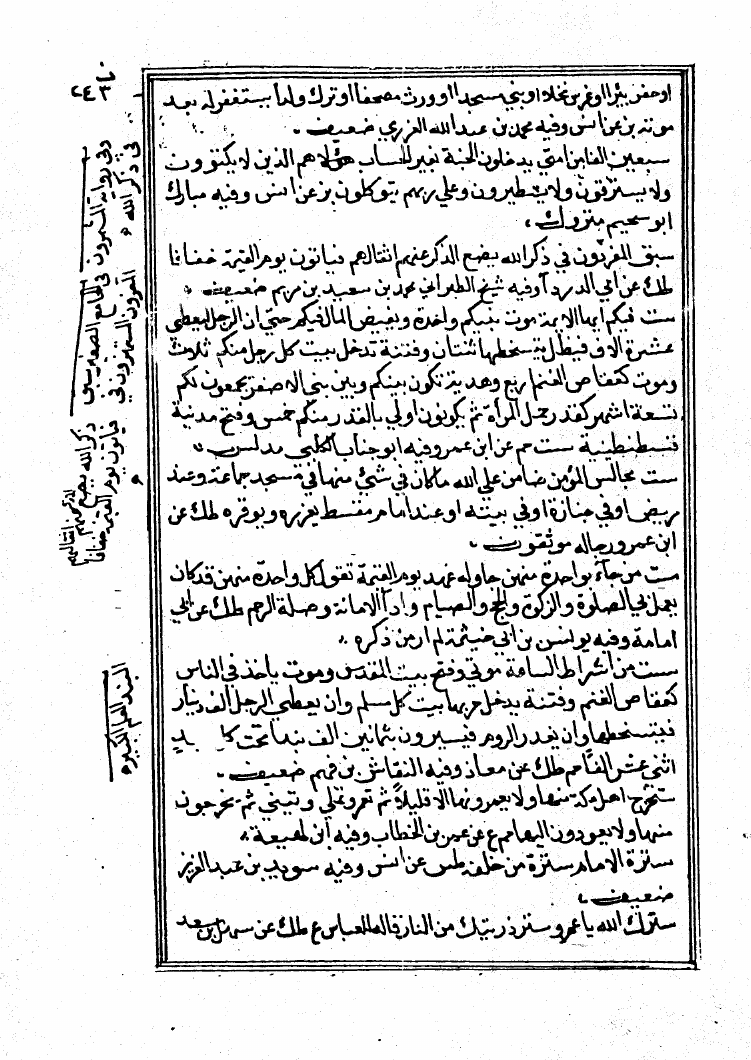 اوحفر بئرا اوغرس نخلا او بني مسجدا اوورث مصحفا اوترك ولدا يستغفرله بعد
موته بز عن انس وفيه محمد بن عبد الله العزري ضعيف .
سبعين الفا من امتي يدخلون الجنة بغير حساب هؤلاهم الذين لا يكتوون
ولا يسترقون ولا يتطيرون وعلي ربهم يتوكلون بز عن انس وفيه مبارك
ابو سحيم متروك .
سبق المفردون في ذكر الله يضع الذكر عنهم اثقالهم فياتون يوم القيمة خفافا
طك عن ابي الدرداء وفيه شيخ الطبراني محمد بن سعيد بن مريم ضعيف .
ست فيكم ايها الامة موت نبيكم واحدة ويفيض المال فيكم حتي ان الرجل ليعطي
عشرة الاف فيظل يتسخطها ثنتان وفتنة تدخل بيت كل رجل منكم ثلاث
وموت كقعاص الغنم اربع وهدنة تكون بينكم وبين بني الاصفر يجمعون لكم
تسعة اشهر كقدر حمل المرأة ثم يكونون اولي بالغدر منكم خمس وفتح مدينة
قسطنطينية ست حم عن ابن عمرو وفيه ابو جناب الكلبي مدلس .
ست مجالس المؤمن ضامن علي الله ماكان في شئ منها في مسجد جماعة وعند
مريض اوفي جنازة اوفي بيته اوعند امام مقسط يعزره ويوقره طك عن
ابن عمرو رجاله موثقون .
ست من جاء بواحدة منهن جاء وله عهد يوم القيمة تقول كل واحدة منهن قد كان
يعمل بي الصلوة والزكوة والحج والصيام وادآ الامانة وصلة الرحم طك عن ابي
امامة وفيه يونس بن ابي خيثمة لم ار من ذكره .
ست من اشراط الساعة موتي وفتح بيت المقدس وموت ياخذ في الناس
كقعاص الغنم وفتنة يدخل حربها بيت كل مسلم وان يعطي الرجل الف دينار
فيتسخطها وان يغدر الروم فيسيرون بثمانين الف بندا تحت كل بند
اثني عشر الفا حم طك عن معاذ وفيه النهاس بن قهم ضعيف .
ستخرج اهل مكة منها ولا يعمرونها الا قليلا ثم تعمر وتمتلي وتبني ثم يخرجون
منها ولا يعودون اليها حم ع عن عمر بن الخطاب وفيه ابن لهيعة .
سترة الامام سترة من خلفه طس عن انس وفيه سويد بن عبد العزيز
ضعيف .
سترك الله يا عم وسترذريتك من النار قاله للعباس ع طك عن سهل بن سعد
٢٤٣
وفي رواية المستهترون في ذكر الله
في الجامع الصغير سبق المفردون المستهترون في
ذكر الله يضع الذكر عنهم اثقالهم فياتون يوم القيمة خفافا
البند العلم الكبير